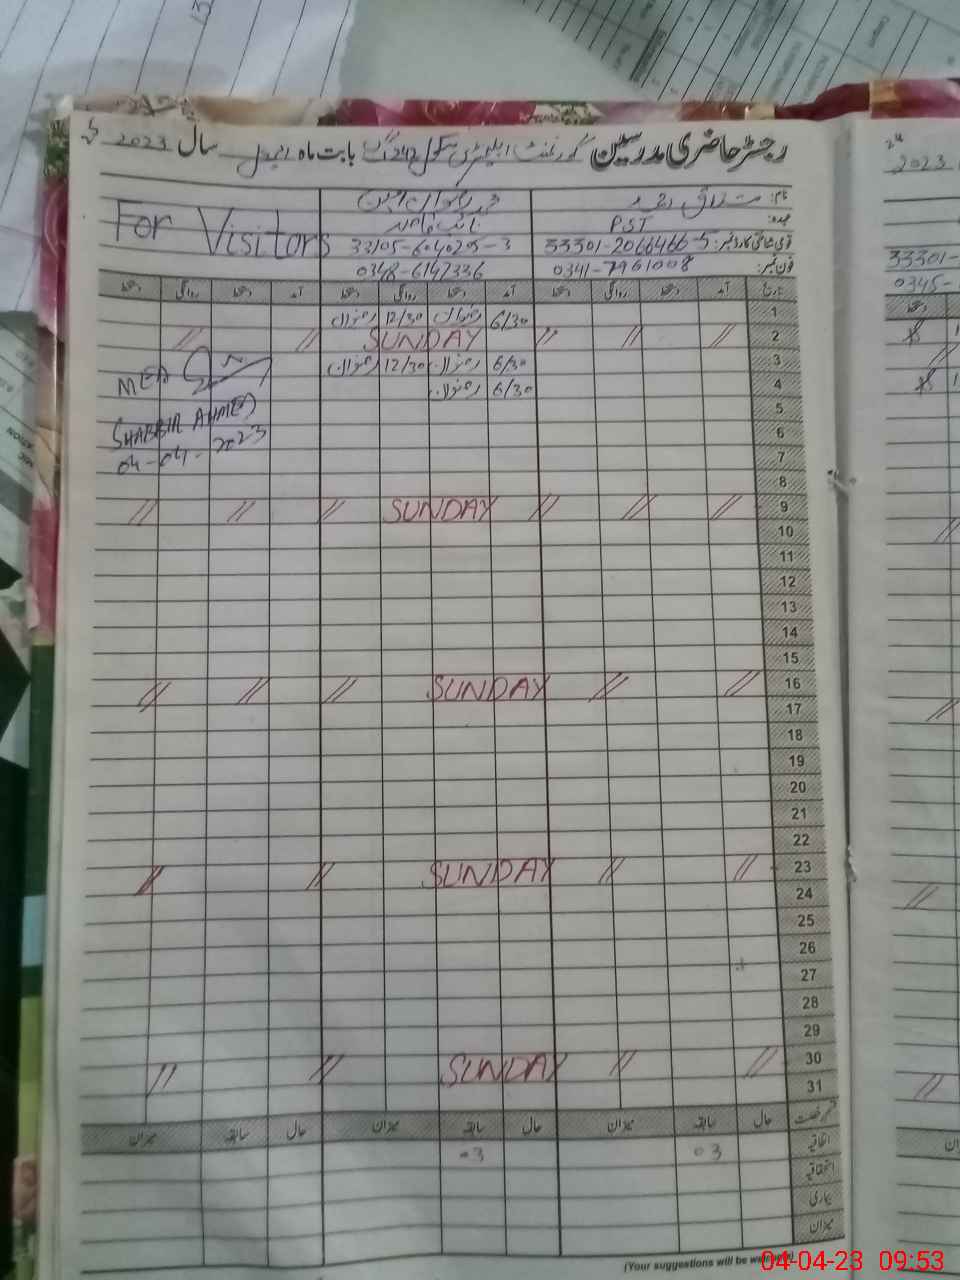 رجسٹر حاضری مدرسین گورنمنٹ ایلیمنٹری سکول 242 گ ب بابت ماہ اپریل سال 2023ء
نام:
عہدہ: PST
قومی شناختی کارڈ نمبر: 33301-2066466-5
33105-6040295-3
فون نمبر: 0341-7961008
0348-6147336
For Visitors
تاریخ آمد دستخط روانگی دستخط آمد دستخط روانگی دستخط آمد دستخط روانگی دستخط
1 6/30 رضوان 12/30 رضوان
2 // // // SUNDAY // //
3 6/30 رضوان 12/30 رضوان
4 6/30 رضوان
MEA
SHABBIR AHMED
04-04-2023
5
6
7
8
9 // // // SUNDAY // // //
10
11
12
13
14
15
16 // // SUNDAY // // //
17
18
19
20
21
22
23 // // SUNDAY // //
24
25
26
27
28
29
30 // // SUNDAY // //
31
قسم رخصت حال سابقہ میزان حال سابقہ میزان حال سابقہ میزان
اتفاقیہ 03 03
استحقاقیہ
بیماری
میزان
(Your suggestions will be
2023
33301-
0345-
04-04-23 09:53